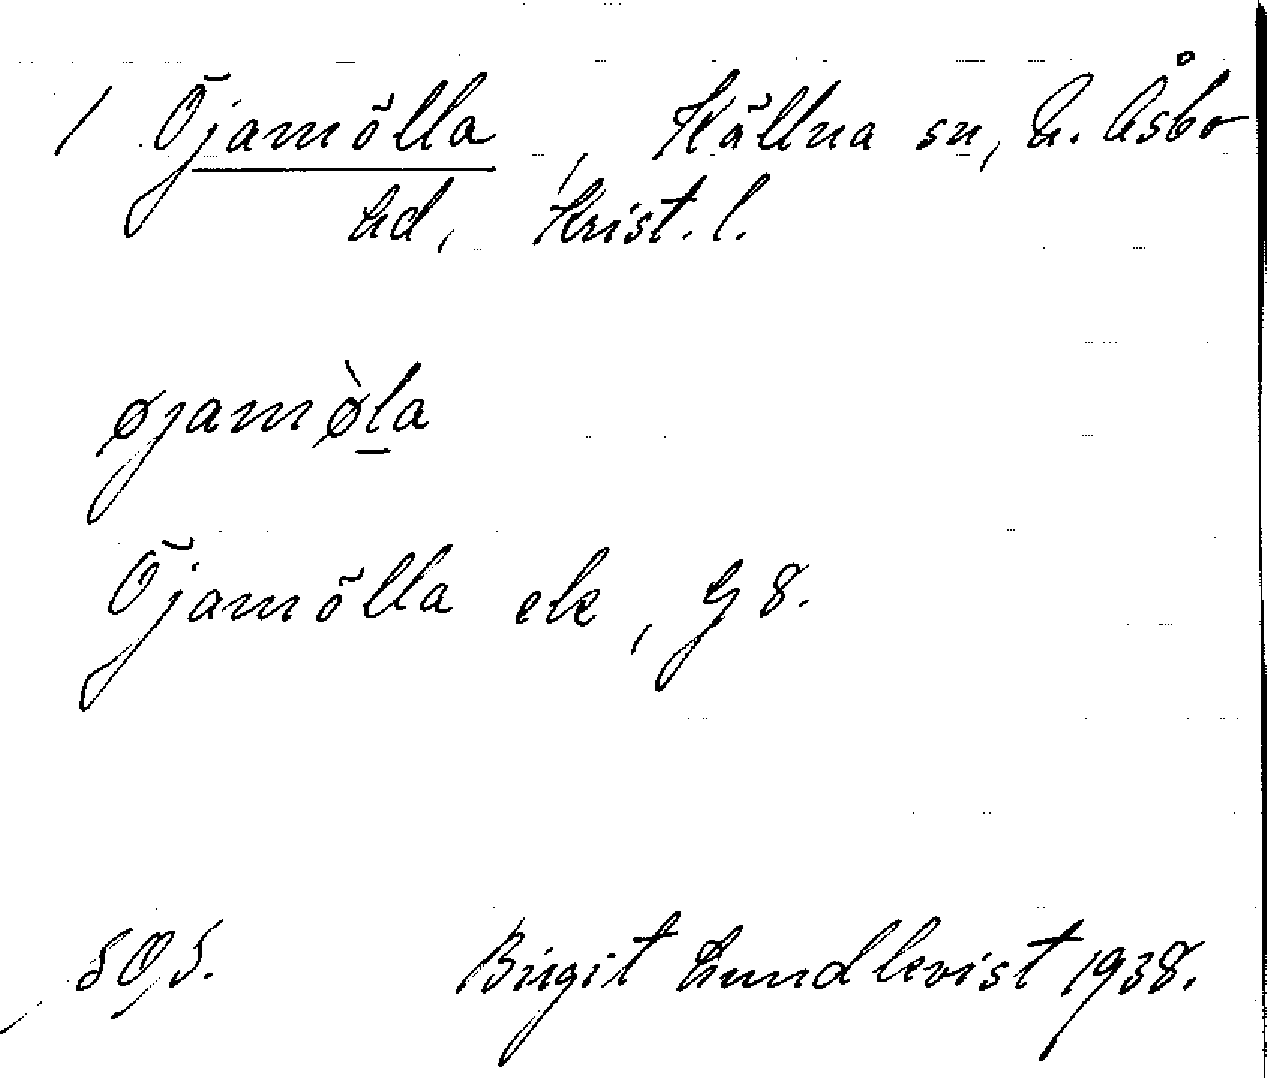 1 Öjamölla, Källna sn, N. Åsbo
hd, Krist. l.
øjamø̀la
Öjamölla ek, G 8.
Birgit Lundkvist 1938.